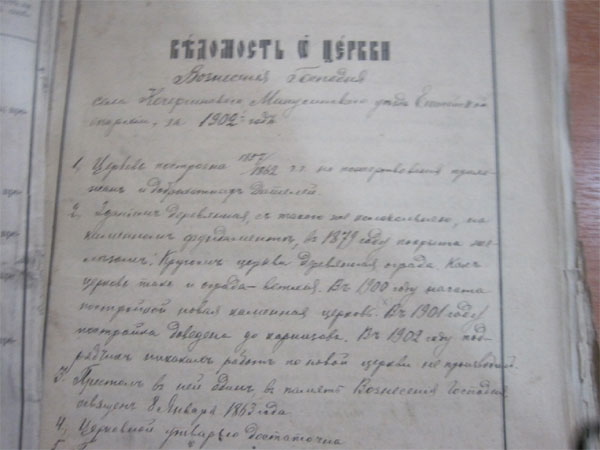 ВѢДОМОСТЬ О ЦЕРКВИ
Вознесенія Господня
села Минусинскаго уѣзда Енисейской
епархіи, за 1902й годъ
1, Церковь построена 1857/1862 г.г. на пожертвованія прихо-
жанъ и Дателей.
2, Зданіемъ деревянная, съ такою же колокольнею, на
каменномъ фундаментѣ, въ 1879 году покрыта же-
лѣзомъ. Кругомъ церкви деревянная ограда. Какъ
церковь такъ и ограда - ветхія. Въ 1900 году начата
постройкой новая каменная церковь. Въ 1901 году
постройка доведена до карнизовъ. Въ 1902 году под-
рядчикъ никакихъ работъ по новой церкви не производилъ.
3, Престолъ въ ней одинъ, въ память Вознесенія Господня
освященъ 8 Января 1863 года.
4, Церковной утварью достаточна
5,